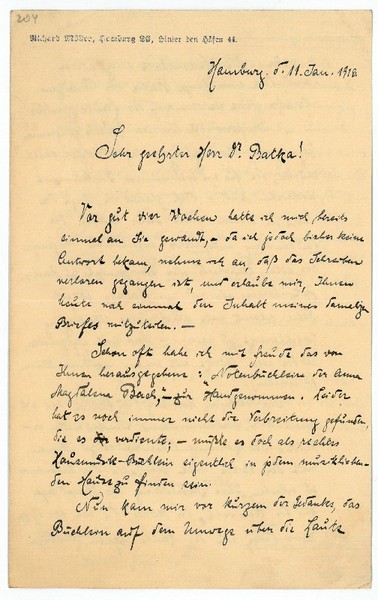 204
Richard Möller, Hamburg 26, Hinter den Höfen 44.
Hamburg. d. 11. Jan. 1918.
Sehr geehrter Herr Dr. Batka!
Vor gut vier Wochen hatte ich mich bereits
einmal an Sie gewandt, – da ich jedoch bisher keine
Antwort bekam, nehme ich an, daß das Schreiben
verloren gegangen ist, und erlaube mir, Ihnen
heute noch einmal den Inhalt meines damaligen
Briefes mitzuteilen. –
Schon oft habe ich mit Freude das von
Ihnen herausgegebene: Notenbüchlein der Anna
Magdalena Bach," – zur Hand genommen. Leider
hat es noch immer nicht die Verbreitung gefunden,
die es verdiente, – müßte es doch als rechtes
Hausmusik-Büchlein eigentlich in jedem musiklieben-
den Hause zu finden sein.
Nun kam mir vor kurzem der Gedanke, das
Büchlein auf dem Umwege über die Laute